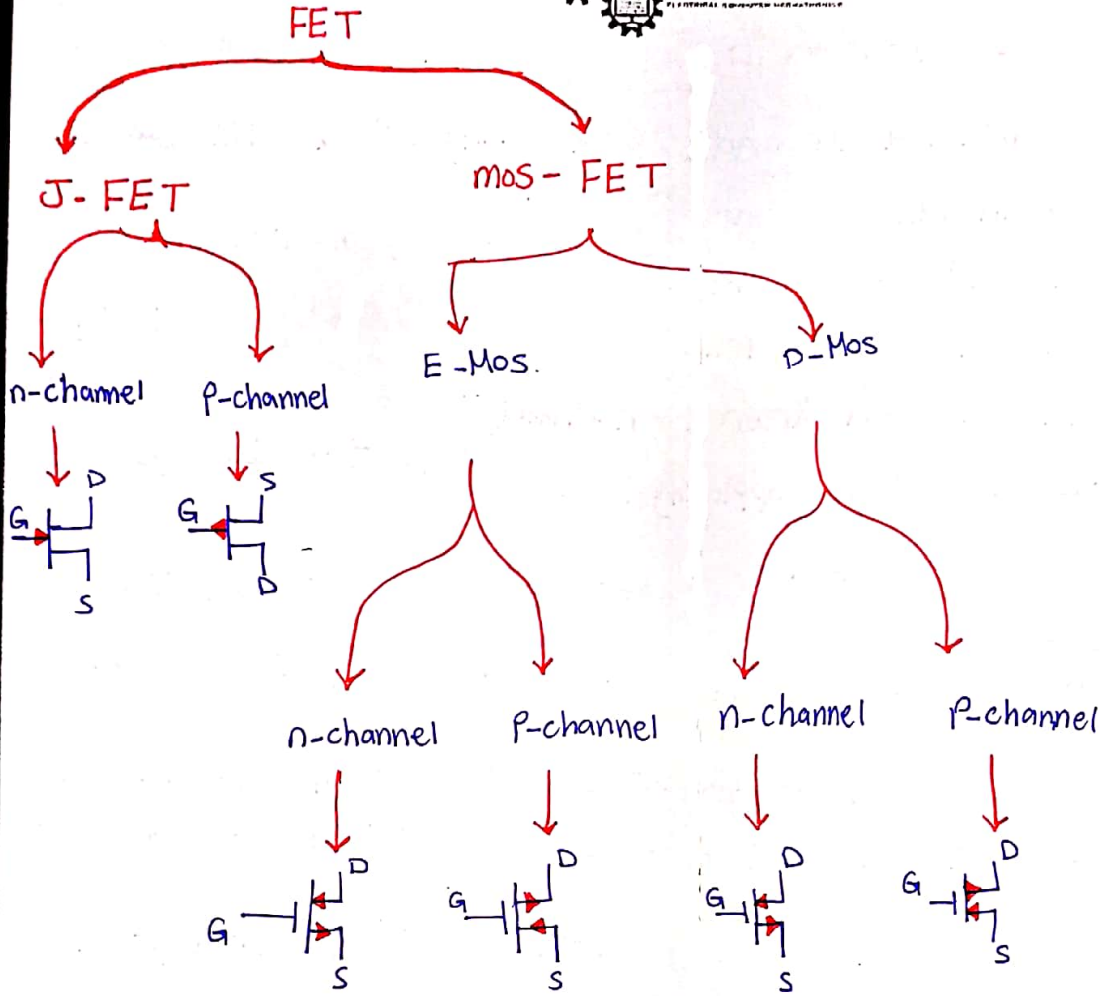 FET
J-FET
mos-FET
n-channel
p-channel
E-Mos.
D-Mos
D
G
S
S
G
D
n-channel
p-channel
n-channel
p-channel
D
G
S
D
G
S
D
G
S
D
G
S